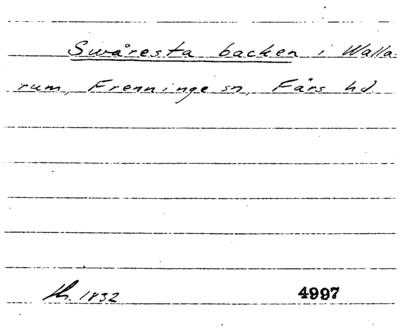 Swåresta backen i Walla-
rum, Frenninge sn, Färs hd.
1832 4997